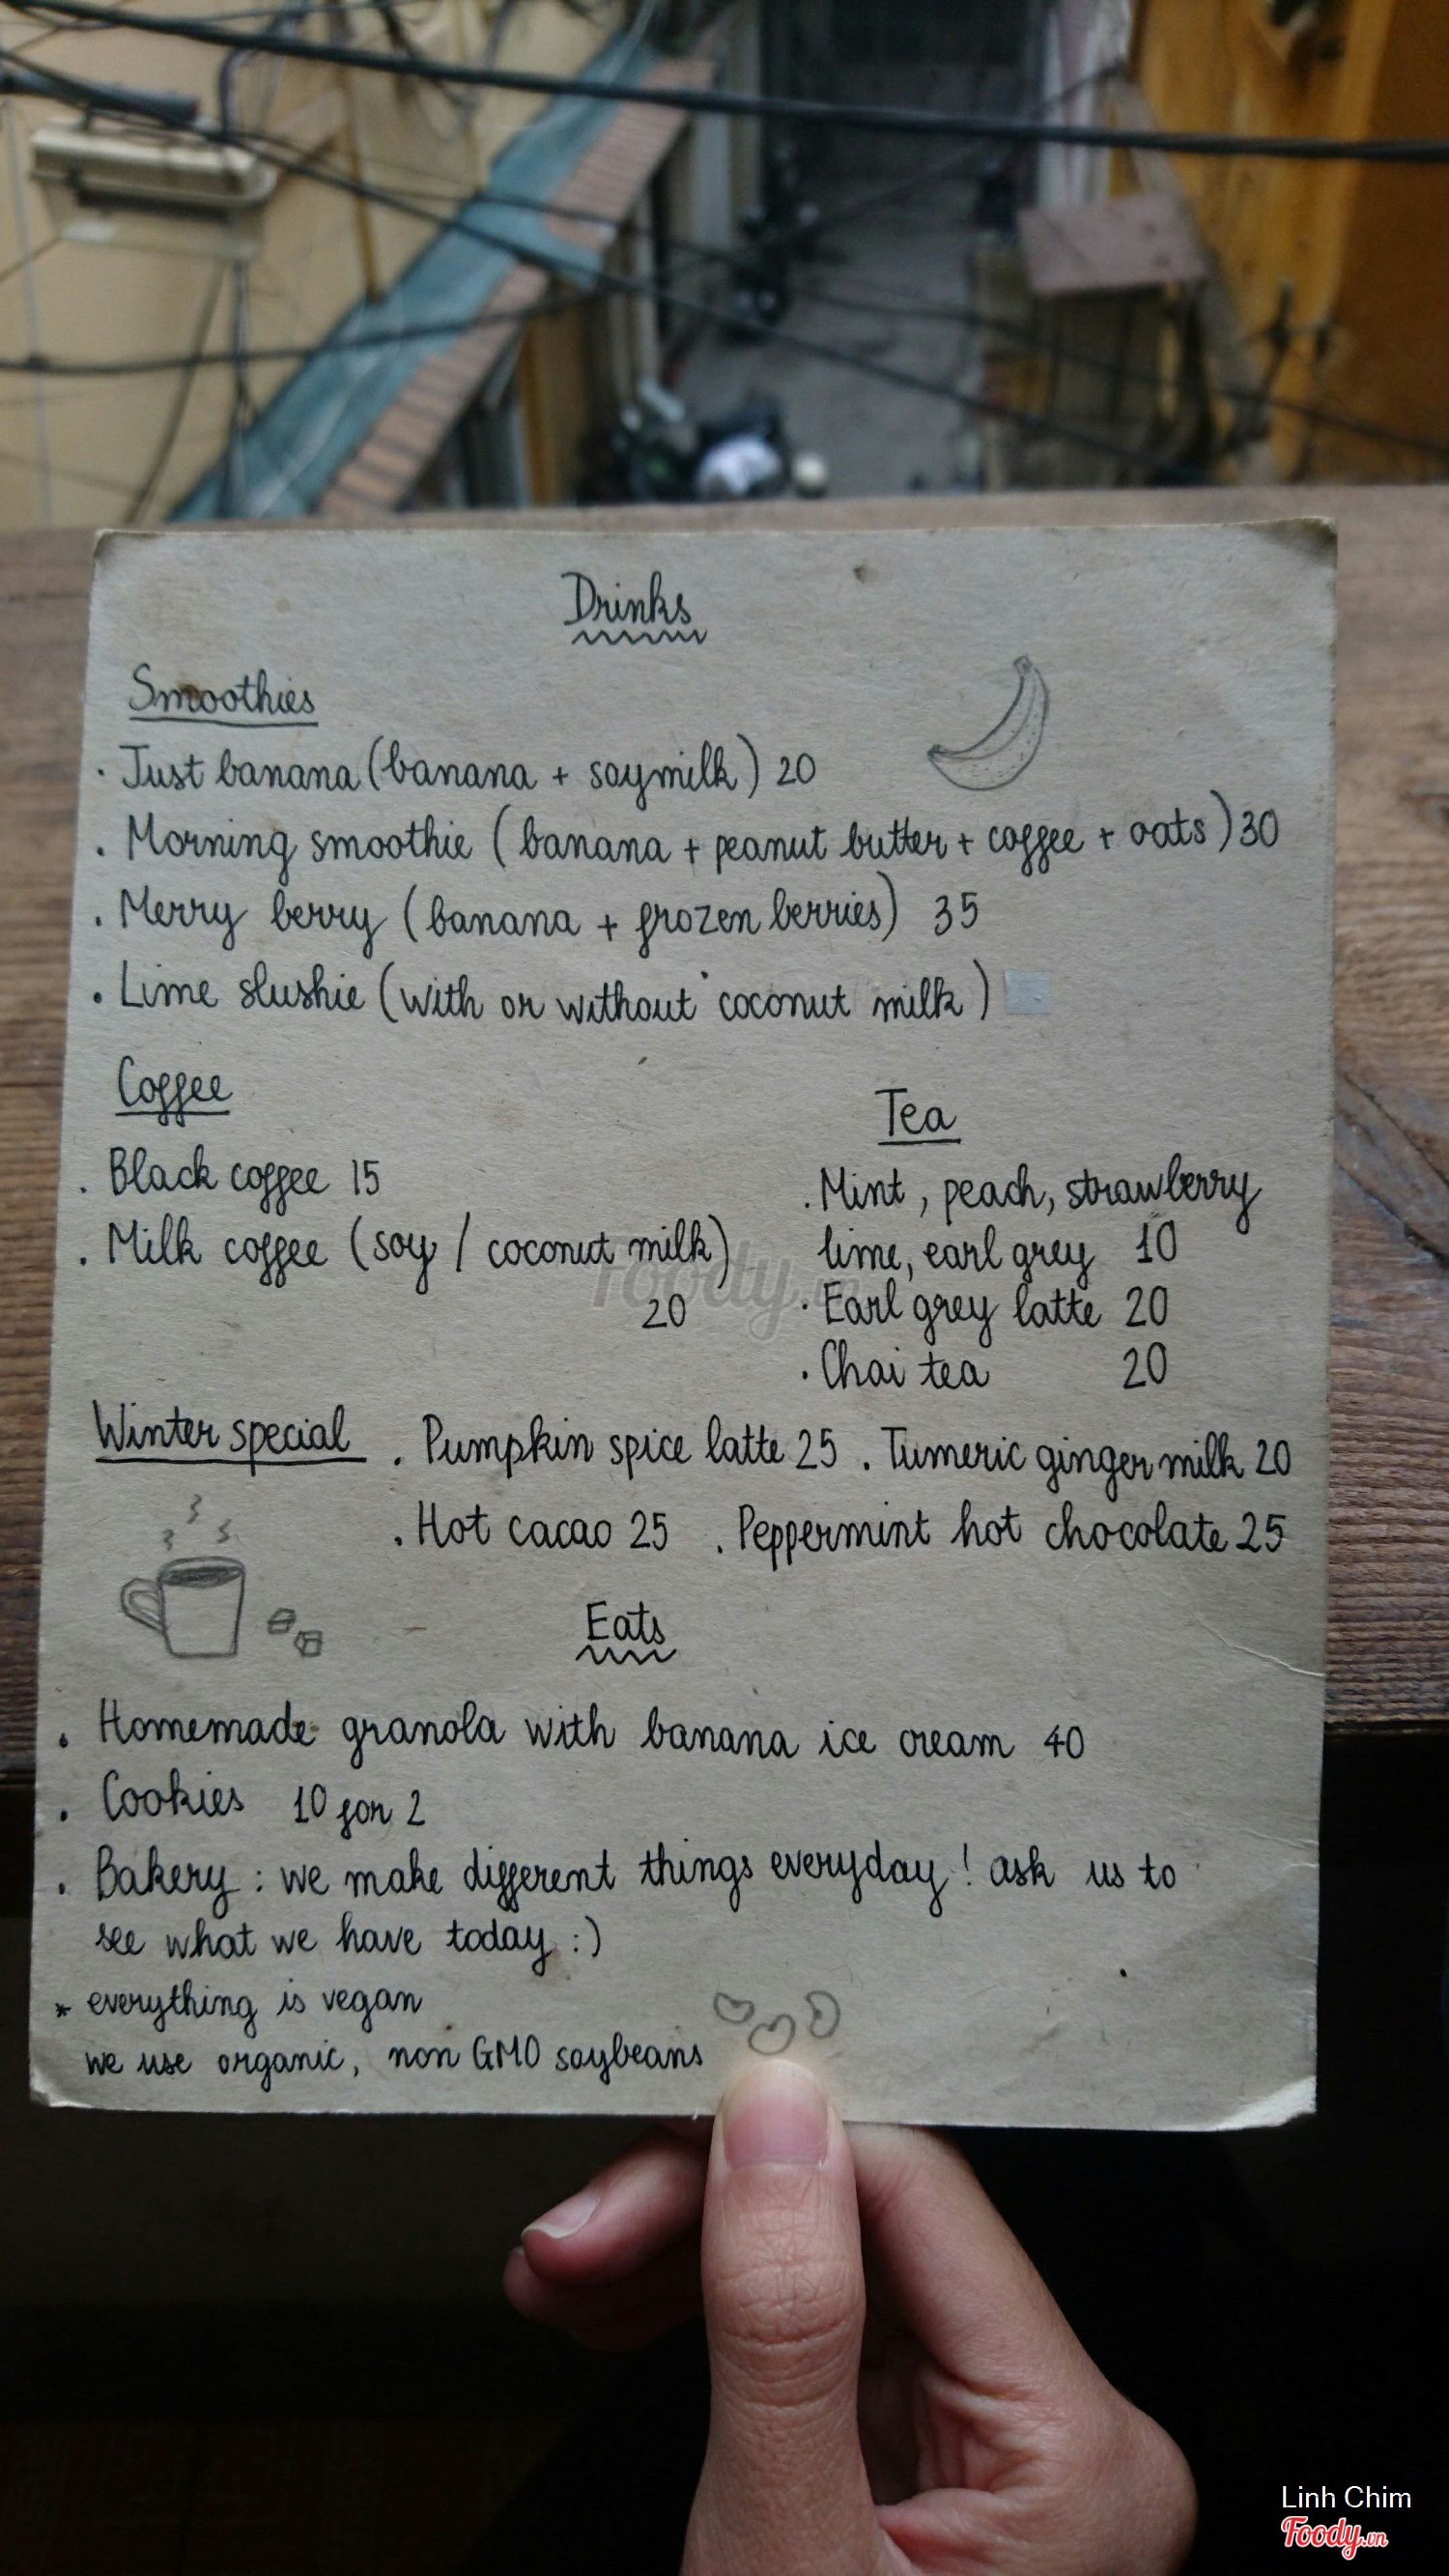 Drinks
Smoothies
· Just banana (banana + soymilk) 20
. Morning smoothie (banana + peanut butter + coffee + oats) 30
. Merry berry (banana + frozen berries) 35
. Lime slushie (with or without coconut milk)
Coffee
. Black coffee 15
. Milk coffee (soy / coconut milk)
20
Tea
. Mint, peach, strawberry
lime, earl grey 10
. Earl grey latte 20
. Chai tea 20
Winter special . Pumpkin spice latte 25 . Tumeric ginger milk 20
. Hot cacao 25 . Peppermint hot chocolate 25
Eats
. Homemade granola with banana ice cream 40
. Cookies 10 for 2
. Bakery : we make different things everyday! ask us to
see what we have today :)
* everything is vegan
we use organic, non GMO soybeans
Foody.vn
Linh Chim
Foody.vn